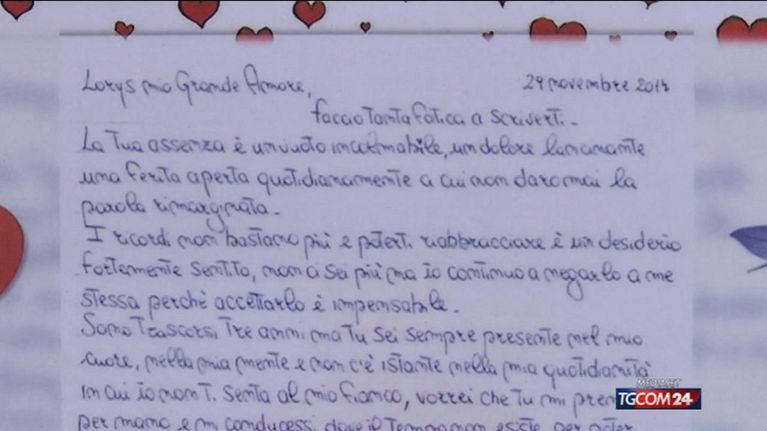 Lorys mio Grande Amore, 29 novembre 2017
faccio tanta fatica a scriverti.
La Tua assenza è un vuoto incolmabile, un dolore lancinante
una ferita aperta quotidianamente a cui non darò mai la
parola rimarginata.
I ricordi non bastano più e poterti riabbracciare è un desiderio
fortemente sentito, non ci sei più ma io continuo a negarlo a me
stessa perchè accettarlo è impensabile.
Sono Trascorsi Tre anni ma Tu sei sempre presente nel mio
cuore, nella mia mente e non c'è istante nella mia quotidianità
in cui io non ti senta al mio fianco, vorrei che Tu mi
per mano e mi conducessi dove il Tempo non esiste per poter
MEDIASET
TGCOM24